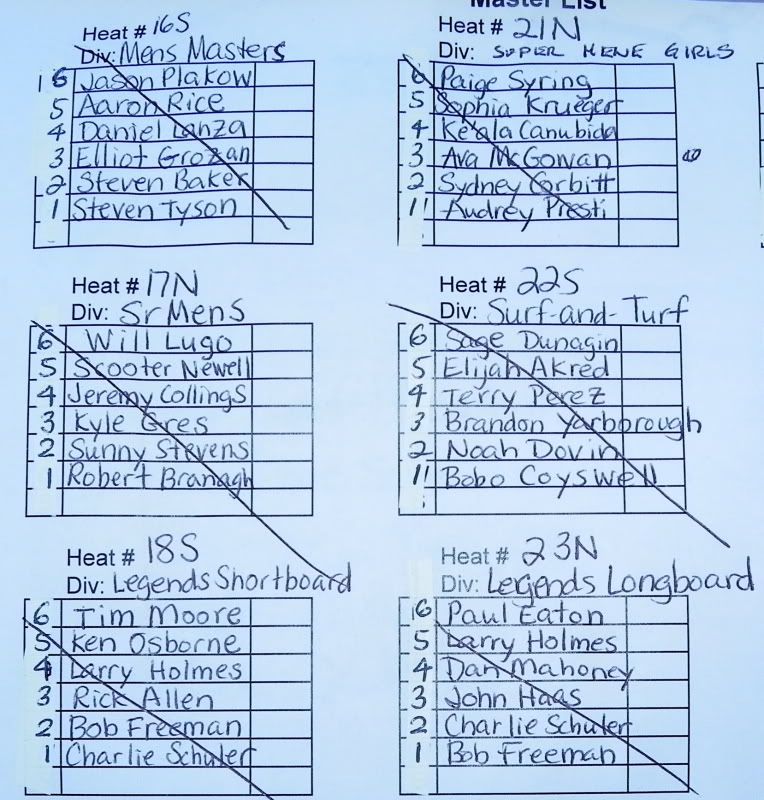 Master List
Heat # 16S
Div: Mens Masters
6 Jason Plakow
5 Aaron Rice
4 Daniel Lanza
3 Elliot Grozan
2 Steven Baker
1 Steven Tyson
Heat # 17N
Div: Sr Mens
6 Will Lugo
5 Scooter Newell
4 Jeremy Collings
3 Kyle Gres
2 Sunny Stevens
1 Robert Branagh
Heat # 18S
Div: Legends Shortboard
6 Tim Moore
5 Ken Osborne
4 Larry Holmes
3 Rick Allen
2 Bob Freeman
1 Charlie Schuler
Heat # 21N
Div: SUPER MENE GIRLS
6 Paige Syring
5 Sophia Krueger
4 Ke'ala Canubida
3 Ava McGowan
2 Sydney Corbitt
1 Audrey Presti
Heat # 22S
Div: Surf-and-Turf
6 Sage Dunagin
5 Elijah Akred
4 Terry Perez
3 Brandon Yarborough
2 Noah Dovin
1 Bobo Coyswell
Heat # 23N
Div: Legends Longboard
6 Paul Eaton
5 Larry Holmes
4 Dan Mahoney
3 John Haas
2 Charlie Schuler
1 Bob Freeman